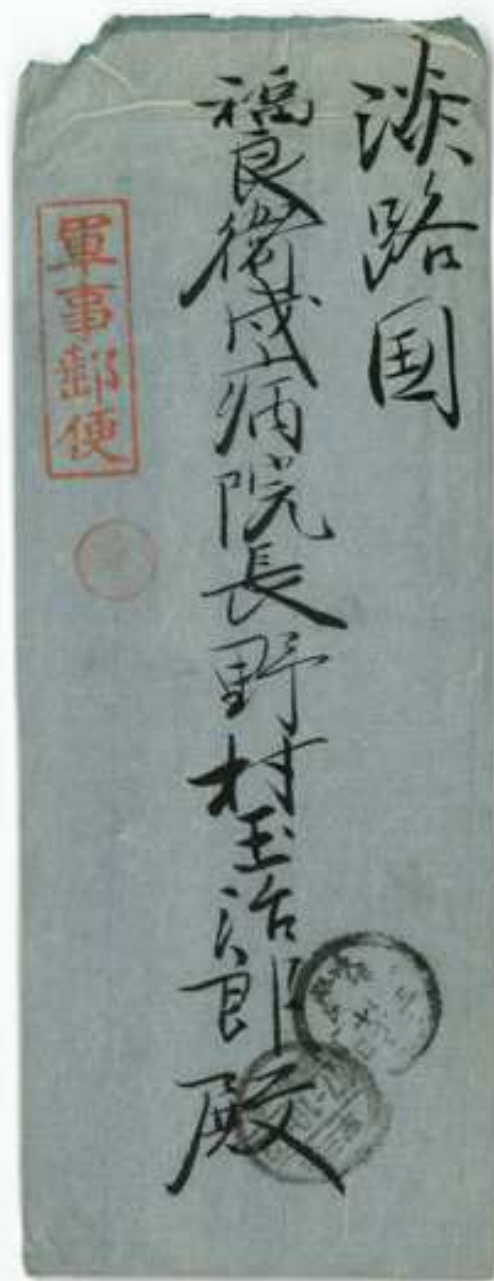 淡路国
福良衛戍病院長野村玉治郎殿
軍事郵便